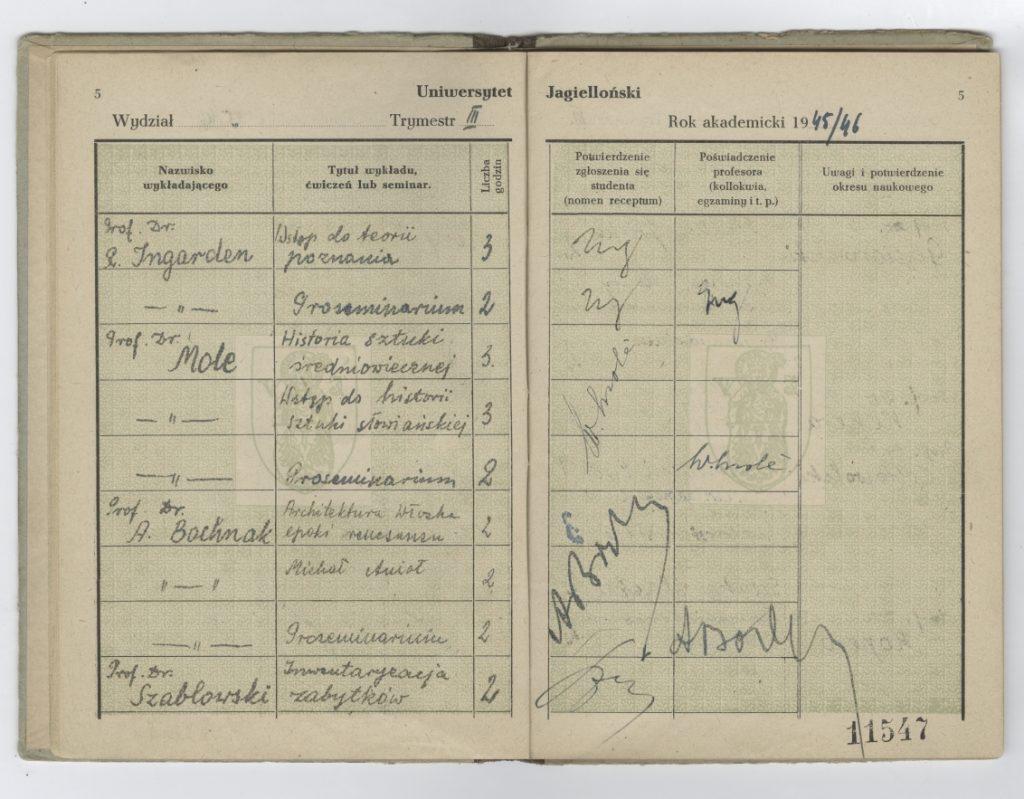 5
Uniwersytet Jagielloński
5
Wydział
Trymestr III
Rok akademicki 1945/46
Nazwisko
wykładającego
Tytuł wykładu,
ćwiczeń lub seminar.
Liczba
godzin
Potwierdzenie
zgłoszenia się
studenta
(nomen receptum)
Poświadczenie
profesora
(kollokwia,
egzaminy i t. p.)
Uwagi i potwierdzenie
okresu naukowego
Prof. Dr.
R. Ingarden
Wstęp do teorii
poznania
3
— „ —
Proseminarium
2
Prof. Dr.
Mole
Historia sztuki
średniowiecznej
3.
W. Molè
— „ —
Wstęp do historii
sztuki słowiańskiej
3
— „ —
Proseminarium
2
W. Molè
Prof. Dr.
A. Bochnak
Architektura Włoska
epoki renesansu
2
„ — „
Michał Anioł
2
— „ —
Proseminarium
2
Prof. Dr.
Szablowski
Inwentaryzacja
zabytków
2
11547